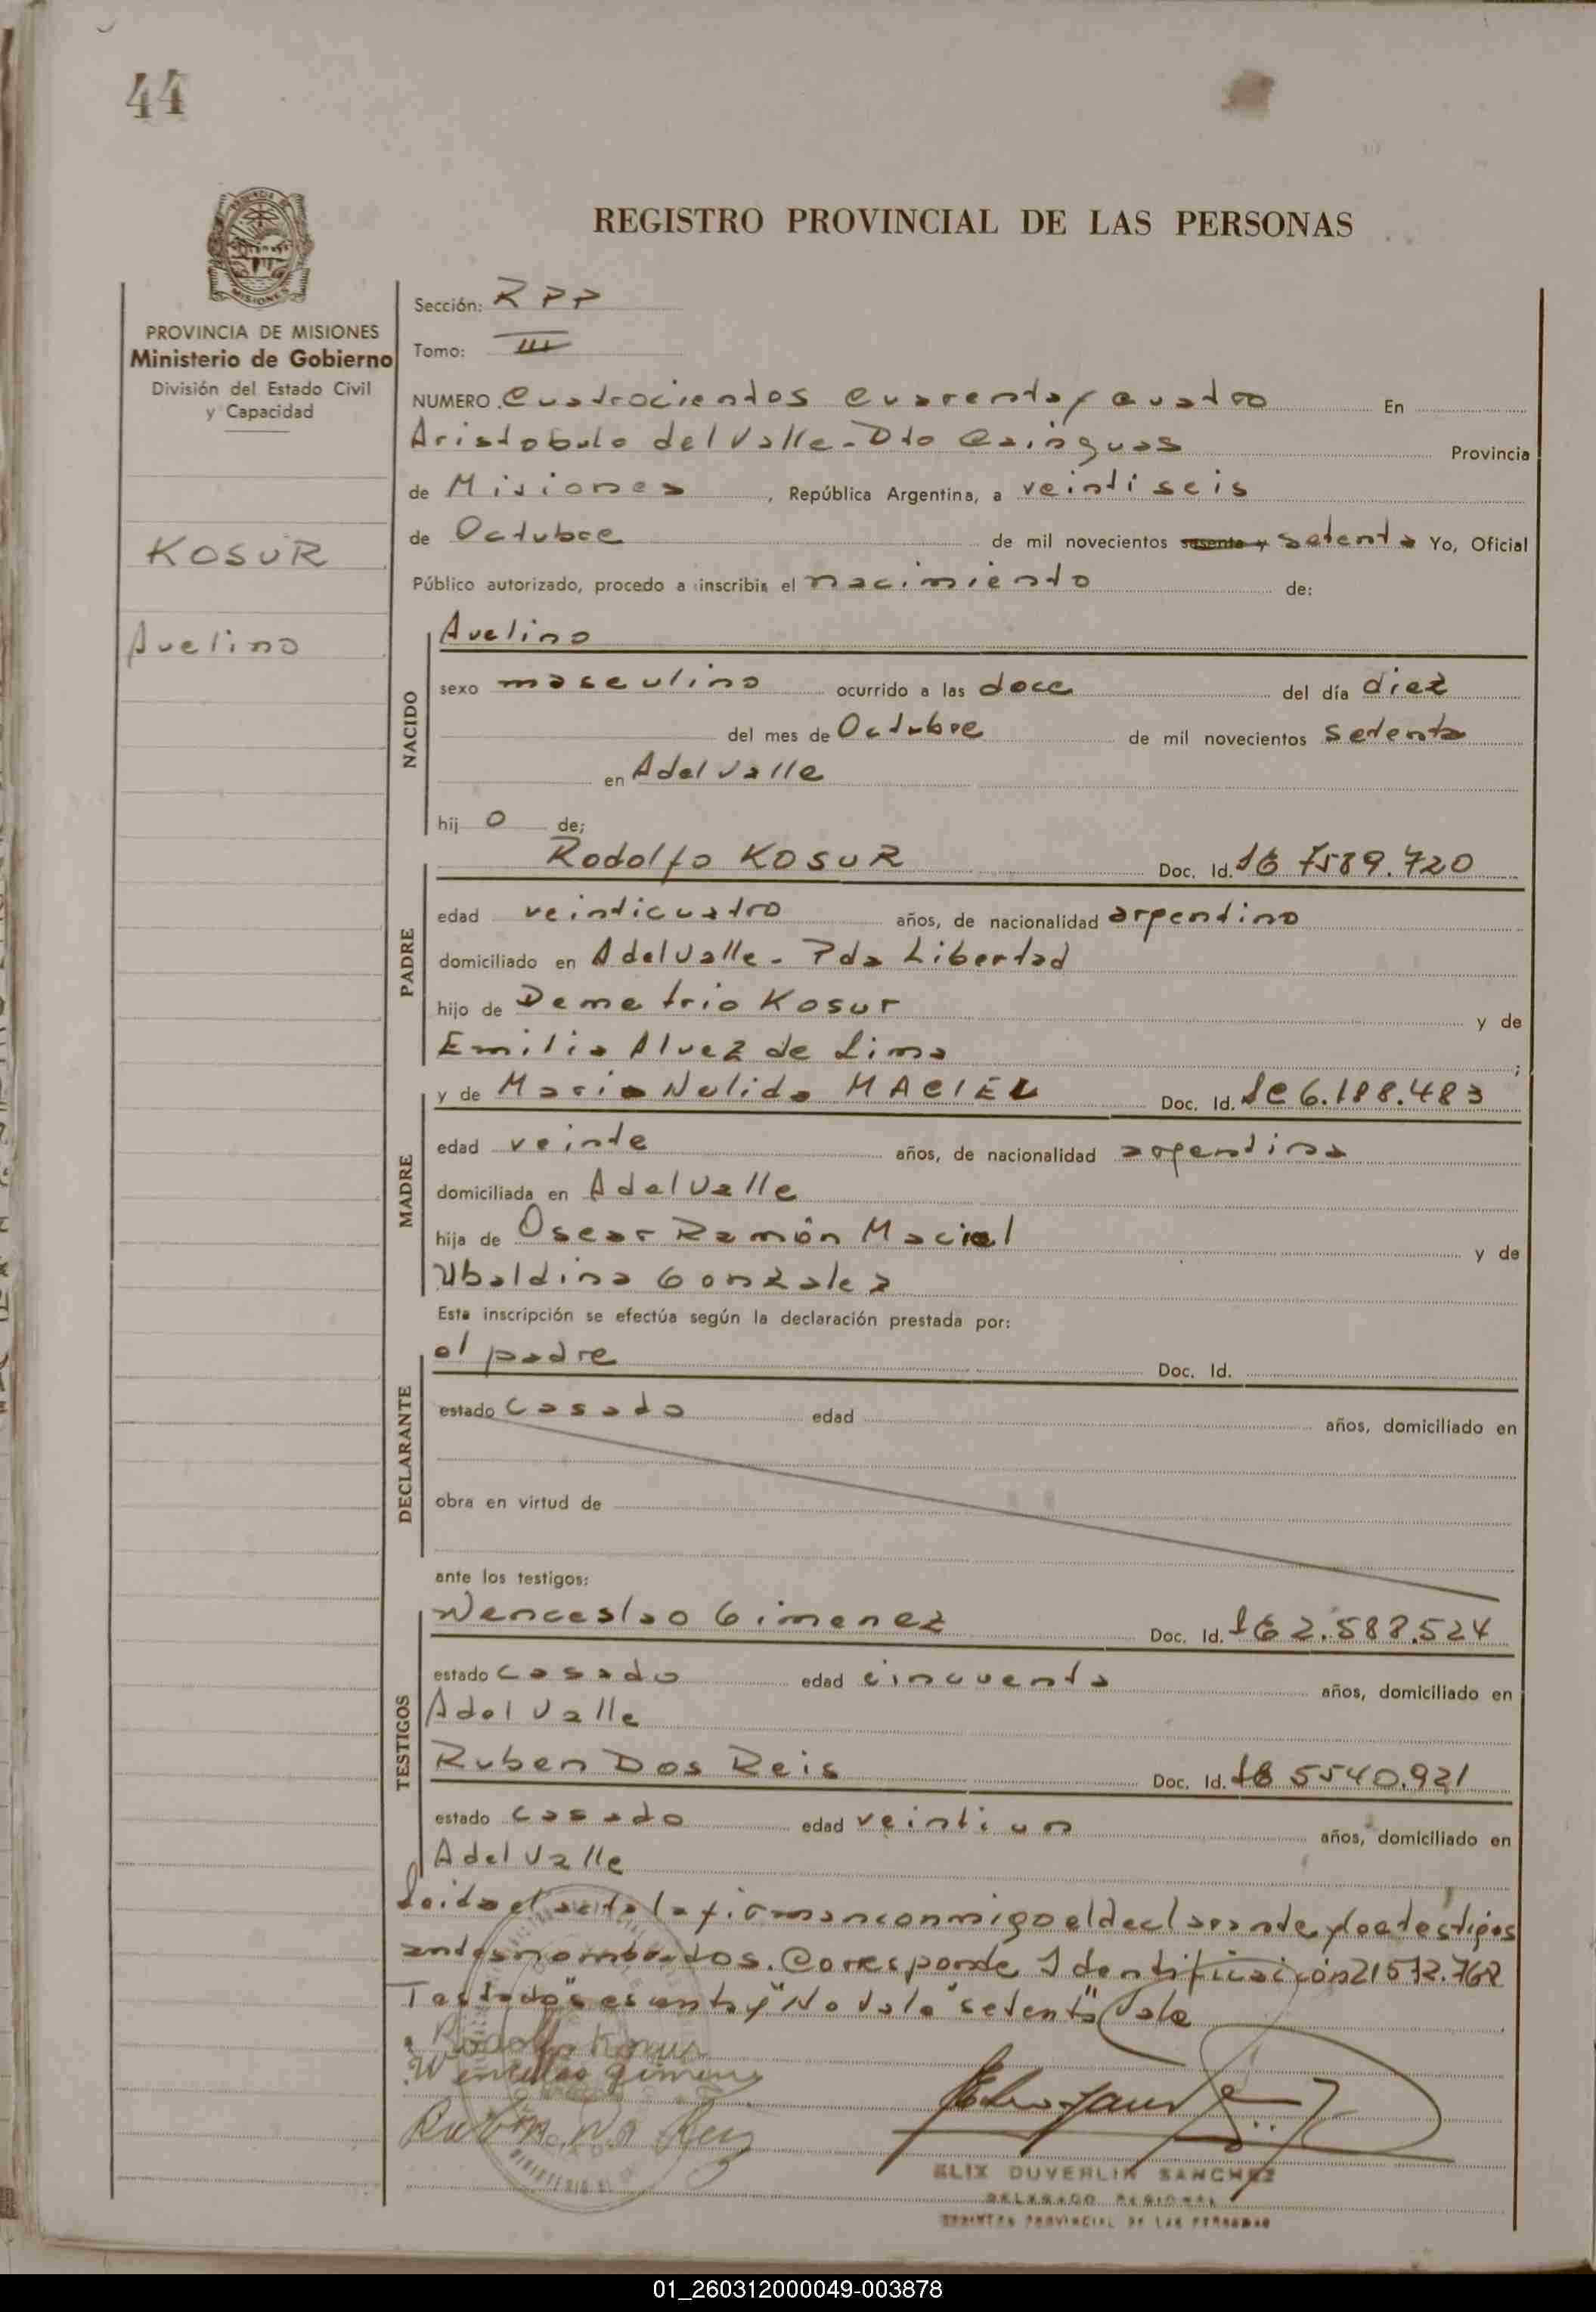 44
REGISTRO PROVINCIAL DE LAS PERSONAS
MISIONES
PROVINCIA DE MISIONES
Ministerio de Gobierno
División del Estado Civil
y Capacidad
KOSUR
Avelino
Sección: RPP
Tomo: III
NUMERO. Cuatrocientos cuarenta y cuatro En
Aristobulo del Valle - Dto Cainguas Provincia
de Misiones, República Argentina, a veintiseis
de Octubre de mil novecientos sesenta y setenta Yo, Oficial
Público autorizado, procedo a inscribir el nacimiento de:
NACIDO
Avelino
sexo masculino ocurrido a las doce del día diez
del mes de Octubre de mil novecientos setenta
en A del Valle
hij o de;
PADRE
Rodolfo KOSUR Doc. Id. 7589.720
edad veinticuatro años, de nacionalidad argentino
domiciliado en A del Valle - Pda Libertad
hijo de Demetrio Kosur y de
Emilia Alvez de Lima ;
MADRE
y de Maria Nelida MACIEL Doc. Id. 6.188.483
edad veinte años, de nacionalidad argentina
domiciliada en A del Valle
hija de Oscar Ramón Maciel y de
Ubaldina Gonzalez
Esta inscripción se efectúa según la declaración prestada por:
DECLARANTE
el padre Doc. Id.
estado casado edad años, domiciliado en
obra en virtud de
ante los testigos:
TESTIGOS
Wenceslao Gimenez Doc. Id. 2.588.524
estado casado edad cincuenta años, domiciliado en
A del Valle
Ruben Dos Reis Doc. Id. 5540.921
estado casado edad veintiun años, domiciliado en
A del Valle
Leida el acta la firman conmigo el declarante y los testigos
antes nombrados. Corresponde Identificación 21572.762
Testado "sesenta y" No vale "setenta" Vale
Rodolfo Kosur
Wenceslao Gimenez
Ruben Do Reis
ELIX DUVERLIN SANCHEZ
DELEGADO REGIONAL
REGISTRO PROVINCIAL DE LAS PERSONAS
01_260312000049-003878